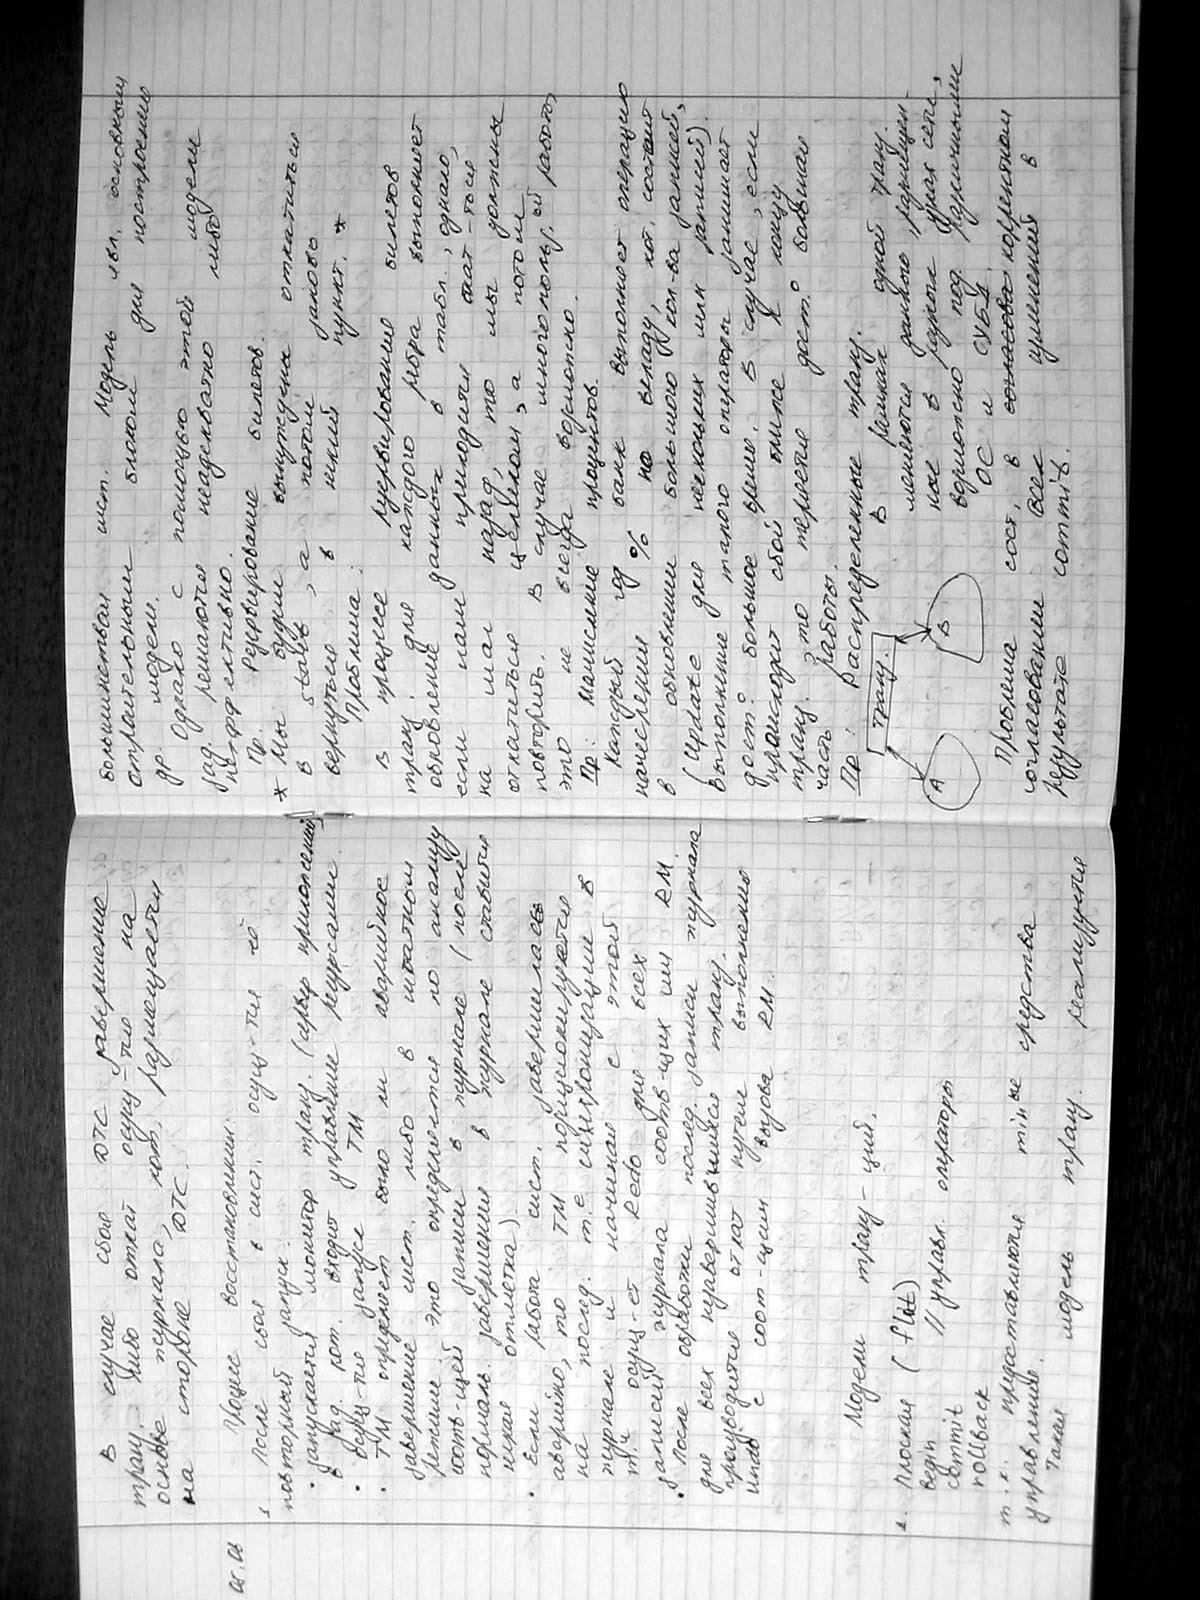 В случае сбоя DTC завершение
транз. либо откат осущ-но на
основе журнала, кот. размещается
на стороне DTC.
05.05
Процесс восстановления:
1. После сбоя в сист. осущ-тся её
повторный запуск.
• запускается монитор транз. (сервер приложений)
в зад. кот. входит управление ресурсами.
• осущ-тся запуск TM
• TM определяет было ли аварийное
завершение сист. либо в штатном
режиме это определяется по анализу
соотв-щей записи в журнале (после
нормальн. завершения в журнале ставится
некая отметка).
• Если работа сист. завершилась
аварийно, то TM позиционируется
на послед. т.е. синхронизации в
журнале и начиная с этой
т.и осущ-ет Redo для всех
записей журнала соотв-щих им RM.
• После обработки послед. записи журнала
для всех незавершившихся транз.
производится откат путём выполнения
undo с соот-щим вызова RM.
Модели транз-ций.
1. Плоская (flat)
begin // управл. операторы
commit
rollback
т.к. предоставляются min ые средства
управления.
Такая модель транз. реализуется
большинством сист. Модель явл. основным
строительным блоком для построения
др. модели.
Однако с помощью этой модели
зад. решаются неадекватно либо
неэффективно.
Пр. Резервирование билетов.
* Мы будем вынуждены откатиться
в start, а потом заново
вернуться в некий пункт. *
Проблема:
В процессе резервирования билетов
транз. для каждого ребра выполняет
обновление данных в табл., однако,
если нам приходится откат-ться
на шаг назад, то мы должны
откатиться целиком, а потом
повторить. В случае многопольз. ой работы,
это не всегда возможно.
Пр: Начисление процентов.
Каждый год банк выполняет операцию
начисления % по вкладу, кот. состоит
в обновлении большого кол-ва записей,
(Update для нескольких млн записей).
Выполнение такого оператора занимает
дост. большое время. В случае, если
происходит сбой ближе к концу
транз., то теряется дост. большая
часть работы.
Пр: Распределенные транз.
транз.
A
B
В рамках одной транз.
меняются данные, размещен-
ные в разных узлах сети,
возможно под различными
ОС и СУБД.
Проблема сост. в корректном
согласовании всех изменений в
результате commit.